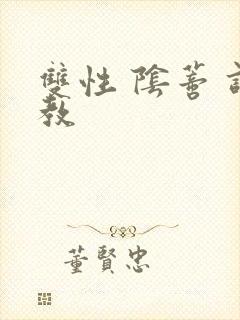 雙性 陰蒂
教
董賢忠